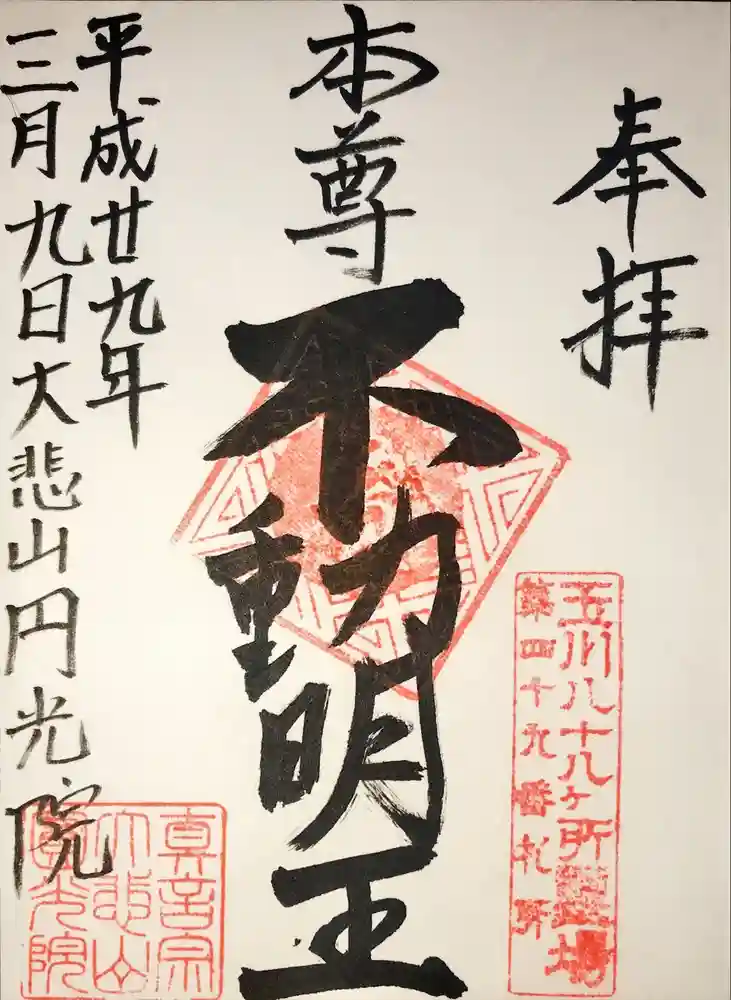 奉拝
玉川八十八ヶ所霊場
第四十九番札所
本尊
不動明王
平成廿九年
三月九日大悲山円光院
真言宗
大悲山
圓光院